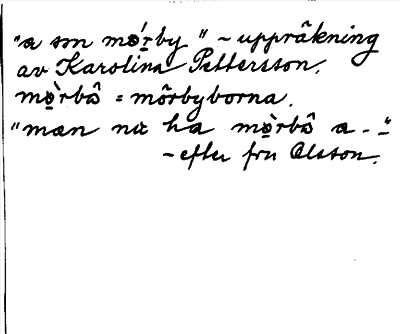 "a son mo̱ṟ́by" – uppräkning
av Karolina Pettersson.
mo̱r̀bô = mörbyborna.
"mæn nu ha mo̱r̀bô a. –"
– efter fru Olsson.